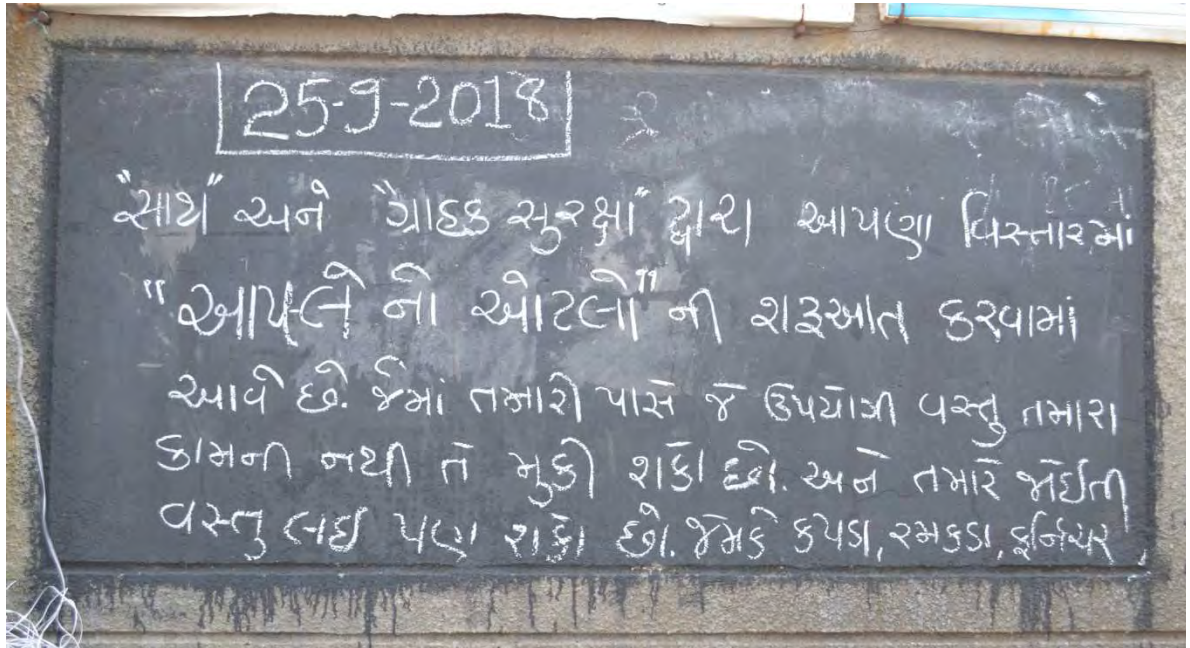 25-9-2018
"સાથ" અને "ગ્રાહક સુરક્ષા" દ્વારા આપણા વિસ્તારમાં
"આપ-લે નો ઓટલો" ની શરૂઆત કરવામાં
આવે છે. જેમાં તમારી પાસે જે ઉપયોગી વસ્તુ તમારા
કામની નથી તે મુકી શકો છો. અને તમારે જોઈતી
વસ્તુ લઇ પણ શકો છો. જેમકે કપડા, રમકડા, ફર્નિચર,